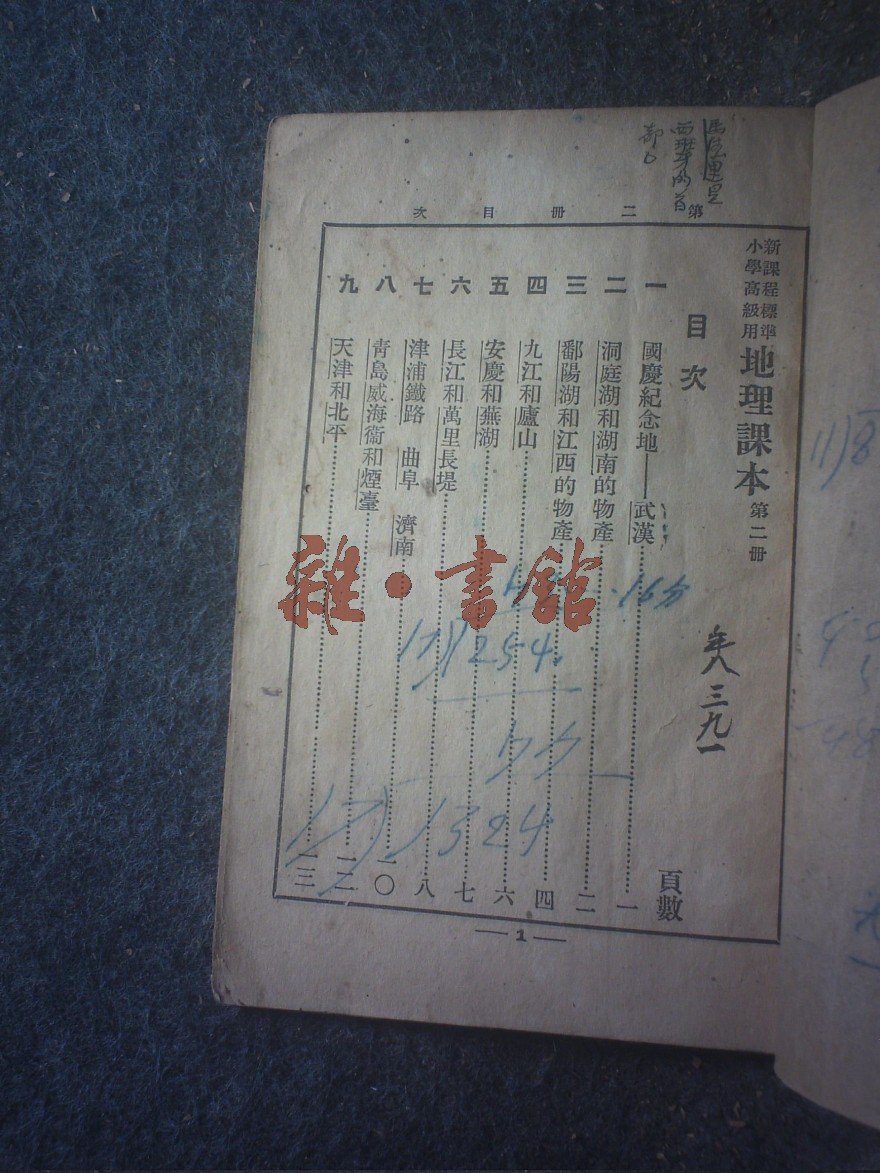 西班牙的首
都
第二冊目次
新課程標準
小學高級用
地理課本 第二冊
目次
頁數
一 國慶紀念地——武漢 一
二 洞庭湖和湖南的物產 二
三 鄱陽湖和江西的物產 四
四 九江和廬山 六
五 安慶和蕪湖 七
六 長江和萬里長堤 八
七 津浦鐵路 曲阜 濟南 一〇
八 青島威海衞和煙臺 一二
九 天津和北平 一三
年八三九一
16分
17)254
17)1324
雜·書館
—1—